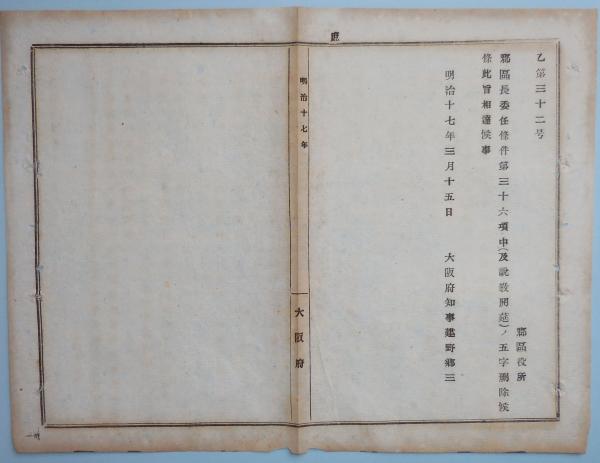 乙第三十二号
郡區役所
郡區長委任條件第三十六項中(及說敎開莚)ノ五字刪除候
條此旨相達候事
明治十七年三月十五日　大阪府知事建野鄕三
庶
明治十七年
大阪府